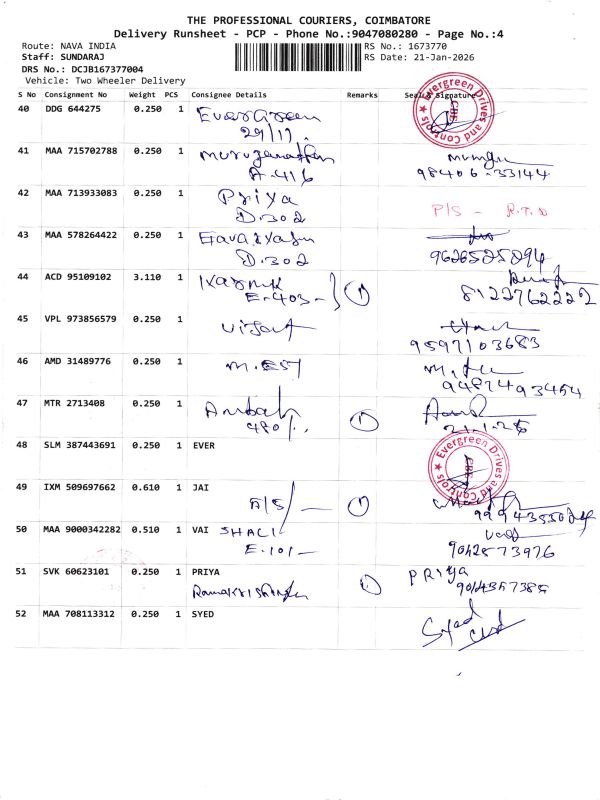 THE PROFESSIONAL COURIERS, COIMBATORE
Delivery Runsheet - PCP - Phone No.:9047080280 - Page No.:4
Route: NAVA INDIA
RS No.: 1673770
Staff: SUNDARAJ
RS Date: 21-Jan-2026
DRS No.: DCJB167377004
Vehicle: Two Wheeler Delivery
S No Consignment No Weight PCS Consignee Details Remarks Seal & Signature
40 DDG 644275 0.250 1 EverGreen
Evergreen Drives and Controls
CBE
41 MAA 715702788 0.250 1
A.416 98406-33144
42 MAA 713933083 0.250 1 Priya
D.302 P/S - R.T.O
43 MAA 578264422 0.250 1
D.302 9626525294
44 ACD 95109102 3.110 1
E-403- 1 8122762222
45 VPL 973856579 0.250 1
9597103683
46 AMD 31489776 0.250 1
47 MTR 2713408 0.250 1
1 21-1-26
48 SLM 387443691 0.250 1 EVER
Evergreen Drives and Controls
CBE
49 IXM 509697662 0.610 1 JAI
A/S/ 1
50 MAA 9000342282 0.510 1 VAI SHALI
E.101- 9042573976
51 SVK 60623101 0.250 1 PRIYA PRIYA
1
52 MAA 708113312 0.250 1 SYED
Syed